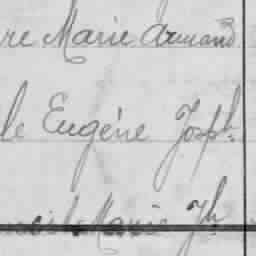 re Marie Armand
le Eugène Josph
Marie Jh